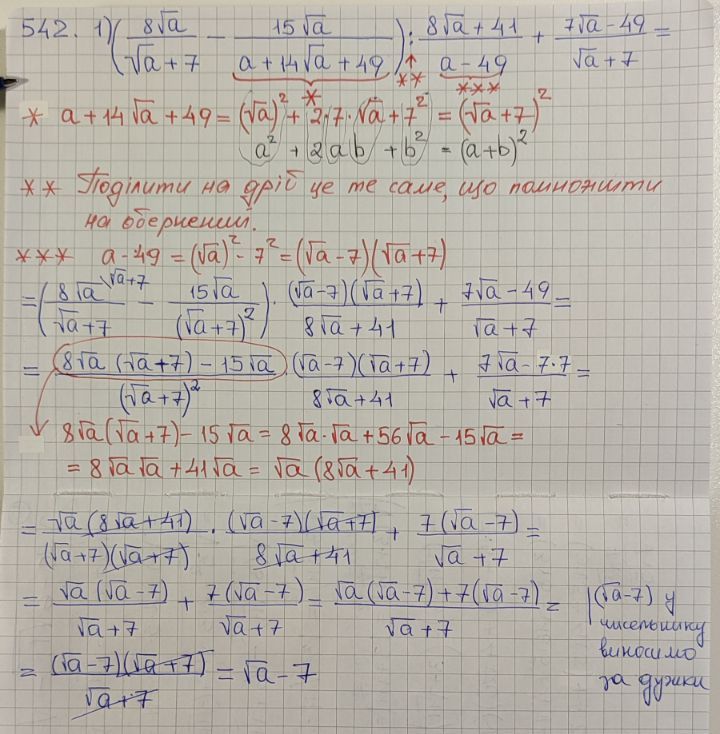 542. 1) (8√a/(√a+7) − 15√a/(a+14√a+49)) : (8√a+41)/(a−49) + (7√a−49)/(√a+7) =
* ** ***
* a+14√a+49 = (√a)²+2·7·√a+7² = (√a+7)²
a² + 2ab + b² = (a+b)²
** Поділити на дріб це те саме, що помножити
на обернений.
*** a-49 = (√a)²-7² = (√a-7)(√a+7)
= (8√a\√a+7/(√a+7) − 15√a/(√a+7)²) · (√a-7)(√a+7)/(8√a+41) + (7√a-49)/(√a+7) =
= (8√a(√a+7)-15√a)/(√a+7)² · (√a-7)(√a+7)/(8√a+41) + (7√a-7·7)/(√a+7) =
8√a(√a+7)-15√a = 8√a·√a+56√a-15√a =
= 8√a√a+41√a = √a(8√a+41)
= √a(8√a+41)/((√a+7)(√a+7)) · (√a-7)(√a+7)/(8√a+41) + 7(√a-7)/(√a+7) =
= √a(√a-7)/(√a+7) + 7(√a-7)/(√a+7) = (√a(√a-7)+7(√a-7))/(√a+7) =
|(√a-7) у
чисельнику
виносимо
за дужки
= (√a-7)(√a+7)/(√a+7) = √a-7